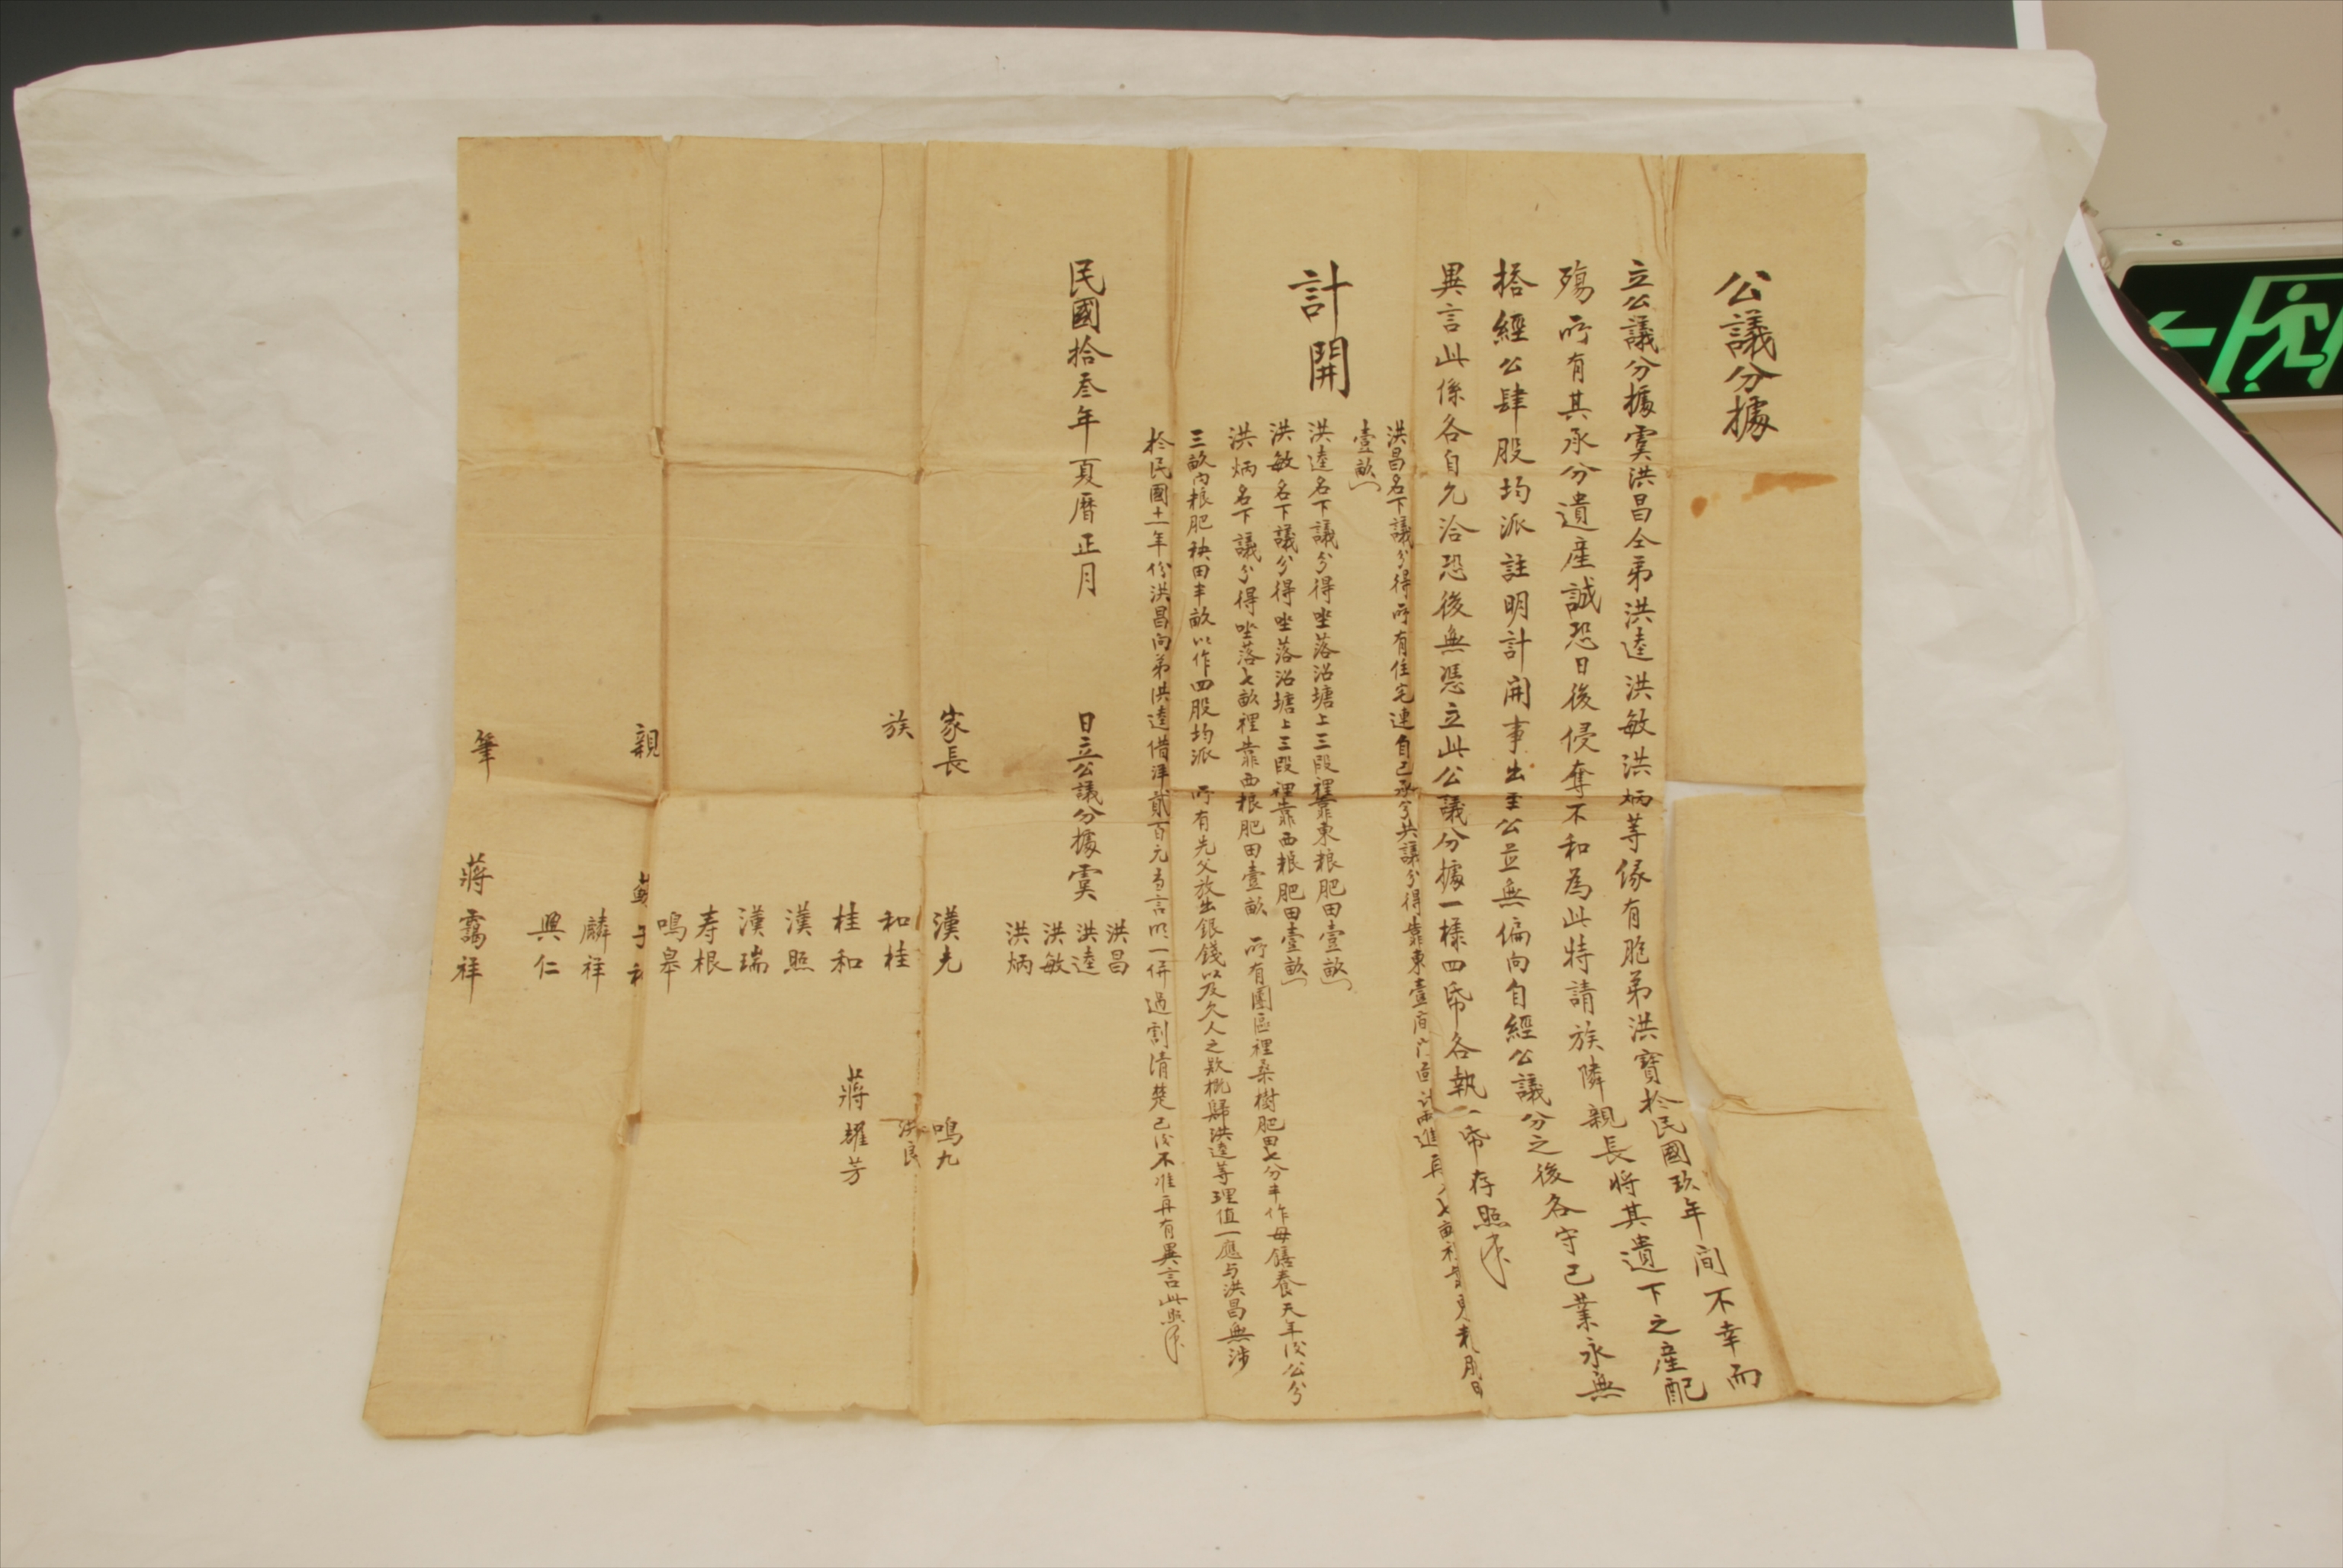 公議分據
立公議分據虞洪昌仝弟洪逵洪敏洪炳等緣有胞弟洪寶於民國玖年间不幸而
殤所有其承分遺產誠恐日後侵奪不和為此特請族隣親長將其遺下之產配
搭經公肆股均派註明計開事出至公並無偏向自經公議分之後各守己業永無
異言此係各自允洽恐後無憑立此公議分據一樣四帋各執一帋存照
計開
洪昌名下議分得所有住宅連自己承分共議分得靠東壹间
壹畝
洪逵名下議分得坐落沼塘上三段裡靠東粮肥田壹畝
洪敏名下議分得坐落沼塘上三段裡靠西粮肥田壹畝
洪炳名下議分得坐落七畝裡靠西粮肥田壹畝 所有園區裡桑樹肥田七分半作母膳養天年後公分
三畝內粮肥秧田半畝以作四股均派 所有先父放出銀錢以及欠人之款概歸洪逵等理值一應与洪昌無涉
於民國十一年份洪昌向弟洪逵借洋貳百元言明一併過割清楚已後不准再有異言此照
民國拾叁年夏曆正月 日立公議分據虞
洪昌
洪逵
洪敏
洪炳
家長 漢光 鳴九
族 和桂 洪良
桂和 蔣耀芳
漢照
漢瑞
寿根
鳴皋
親
麟祥
興仁
筆 蔣靄祥